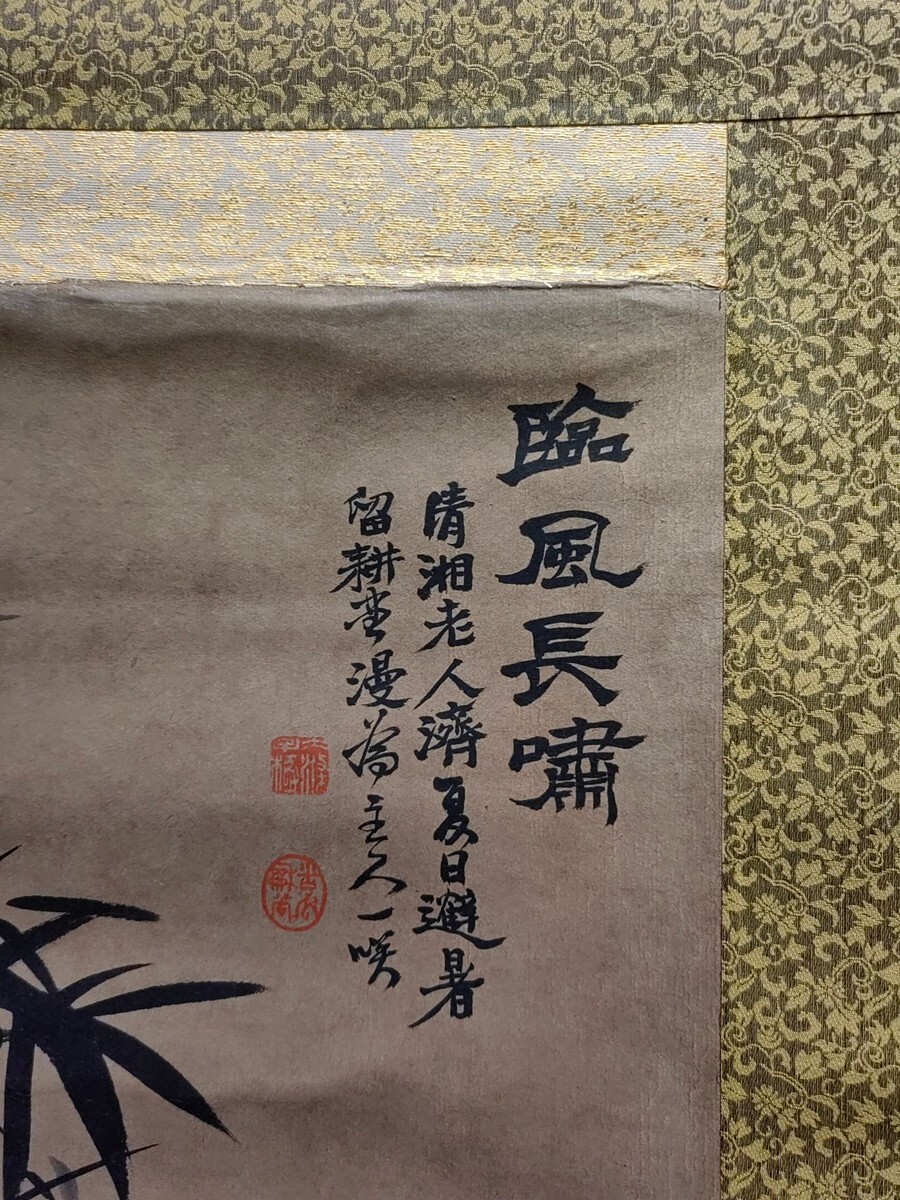 臨風長嘯
清湘老人濟夏日避暑
留耕堂漫為主人一咲
苦瓜和尚